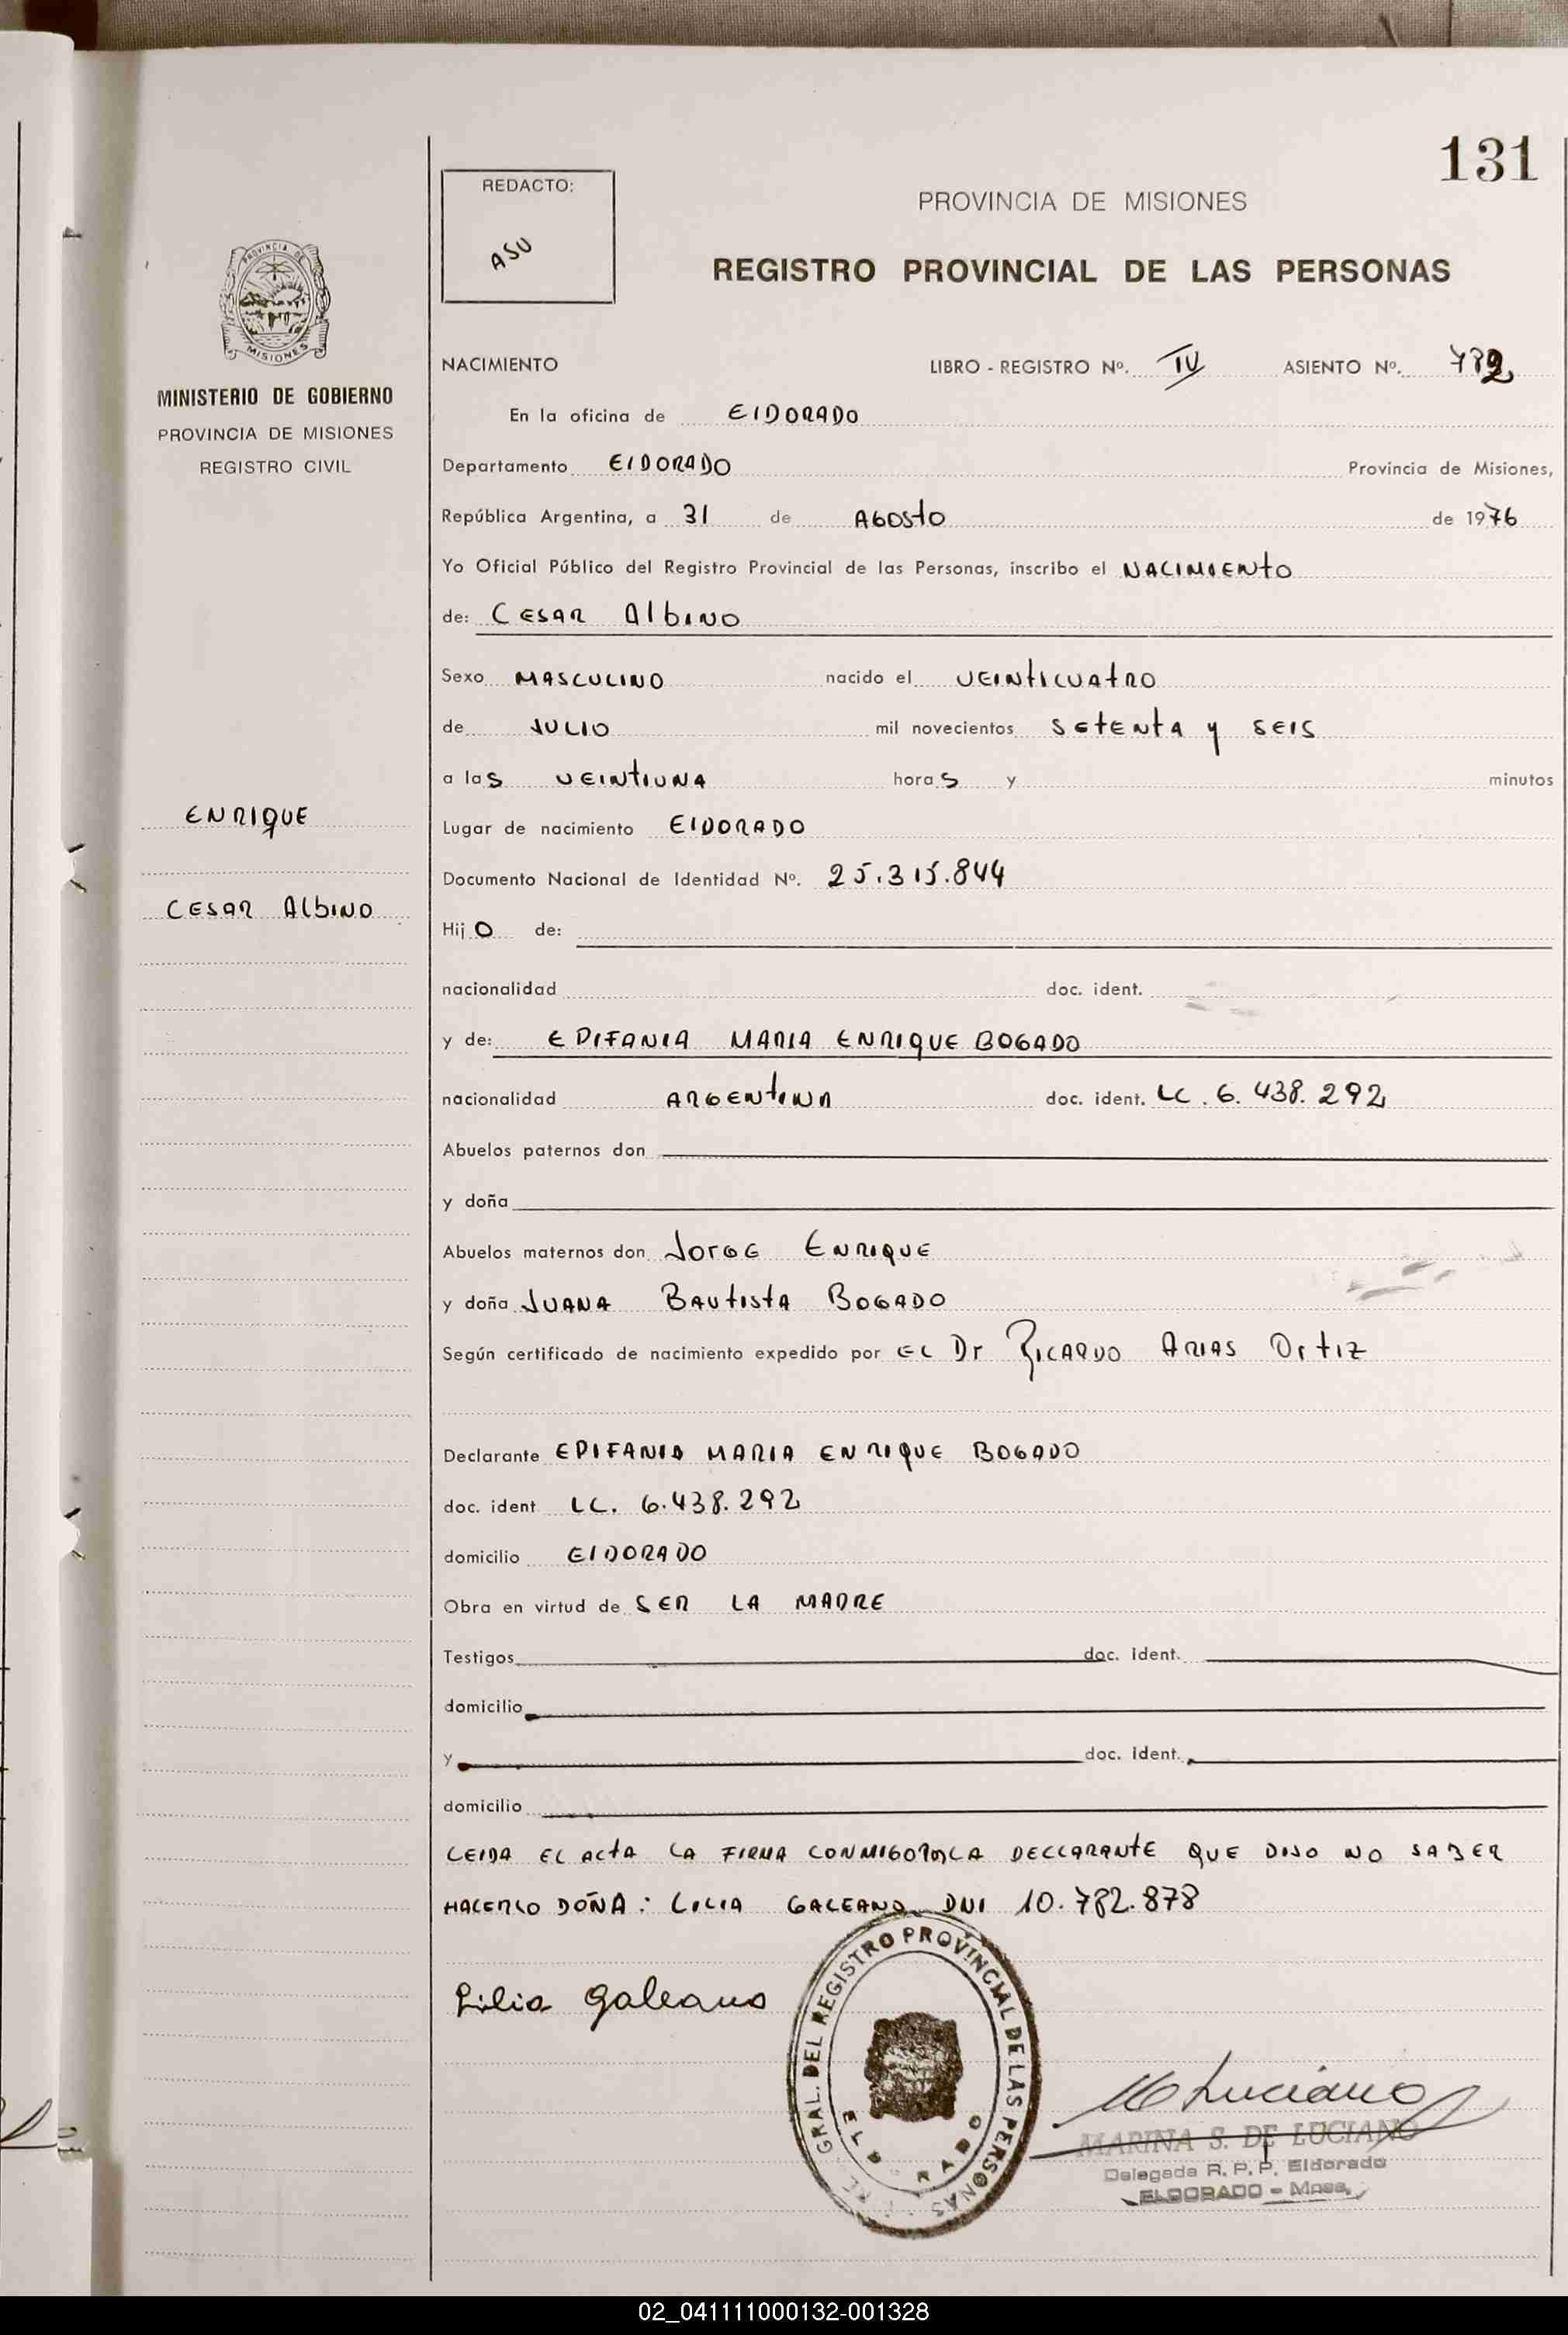 131
REDACTO:
ASU
PROVINCIA DE MISIONES
REGISTRO PROVINCIAL DE LAS PERSONAS
PROVINCIA DE
MISIONES
MINISTERIO DE GOBIERNO
PROVINCIA DE MISIONES
REGISTRO CIVIL
NACIMIENTO LIBRO - REGISTRO Nº. IV ASIENTO Nº.
En la oficina de ElDORADO
Departamento ElDORADO Provincia de Misiones,
República Argentina, a 31 de AGOSTO de 1976
Yo Oficial Público del Registro Provincial de las Personas, inscribo el NACIMIENTO
de: CESAR AlbINO
Sexo MASCULINO nacido el VEINTICUATRO
de JULIO mil novecientos SETENTA y SEIS
a las VEINTIUNA horas y minutos
ENRIQUE
Lugar de nacimiento ElDORADO
Documento Nacional de Identidad Nº. 25.315.844
CESAR AlbINO
Hijo de:
nacionalidad doc. ident.
y de: EPIFANIA MARIA ENRIQUE BOGADO
nacionalidad ARGENTINA doc. ident. LC. 6.438.292
Abuelos paternos don
y doña
Abuelos maternos don JORGE ENRIQUE
y doña JUANA BAUTISTA BOGADO
Según certificado de nacimiento expedido por EL Dr RICARDO ARIAS ORTIZ
Declarante EPIFANIA MARIA ENRIQUE BOGADO
doc. ident LC. 6.438.292
domicilio ElDORADO
Obra en virtud de SER LA MADRE
Testigos doc. ident.
domicilio
y doc. ident.
domicilio
LEIDA EL ACTA LA FIRMA CONMIGO POR LA DECLARANTE QUE DIJO NO SABER
HACERLO DOÑA: LILIA GALEANO DNI 10.782.878
Lilia Galeano
GRAL. DEL REGISTRO PROVINCIAL DE LAS PERSONAS
M Luciano
MARINA S. DE LUCIANO
Delegada R. P. P. Eldorado
ELDORADO - Mnes.
02_041111000132-001328